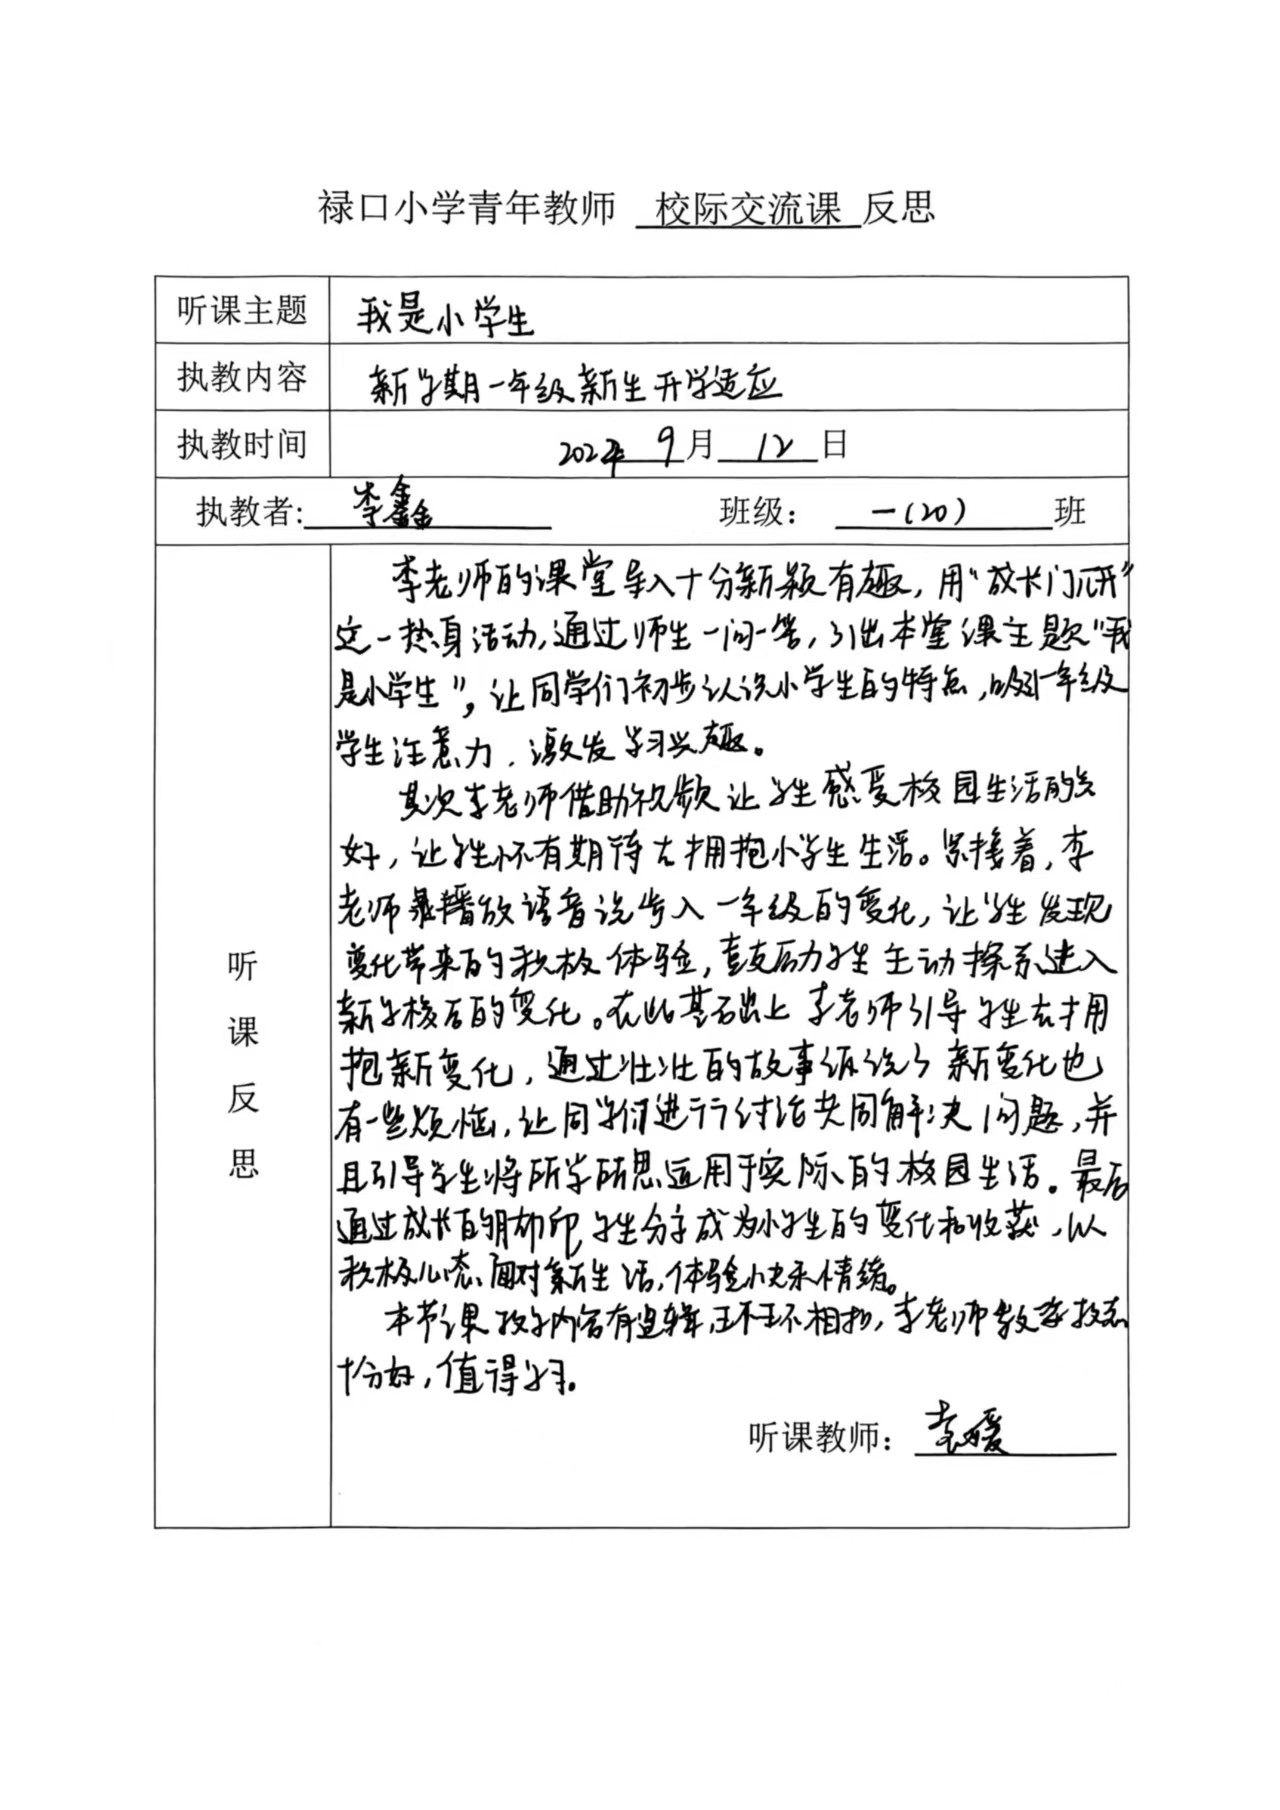 禄口小学青年教师 校际交流课 反思
听课主题 我是小学生
执教内容 新学期一年级新生开学适应
执教时间 2024年 9月 12日
执教者: 李鑫 班级： 一(20) 班
听课反思
李老师的课堂导入十分新颖有趣，用“成长门开”
这一热身活动，通过师生一问一答，引出本堂课主题“我
是小学生”，让同学们初步认识小学生的特点，吸引一年级
学生注意力，激发学习兴趣。
其次李老师借助视频让学生感受校园生活的美
好，让学生怀有期待去拥抱小学生生活。紧接着，李
老师播放语音说步入一年级的变化，让学生发现
变化带来的积极体验，鼓励学生主动探索进入
新学校后的变化。在此基础上李老师引导学生去拥
抱新变化，通过壮壮的故事诉说了新变化也
有一些烦恼，让同学们进行讨论共同解决问题，并
且引导学生将所学所思运用于实际的校园生活。最后
通过成长的脚印学生分享成为小学生的变化和收获，以
积极心态面对新生活，体验快乐情绪。
本节课教学内容有逻辑，环环相扣，李老师教学教态
十分好，值得学习。
听课教师： 袁媛